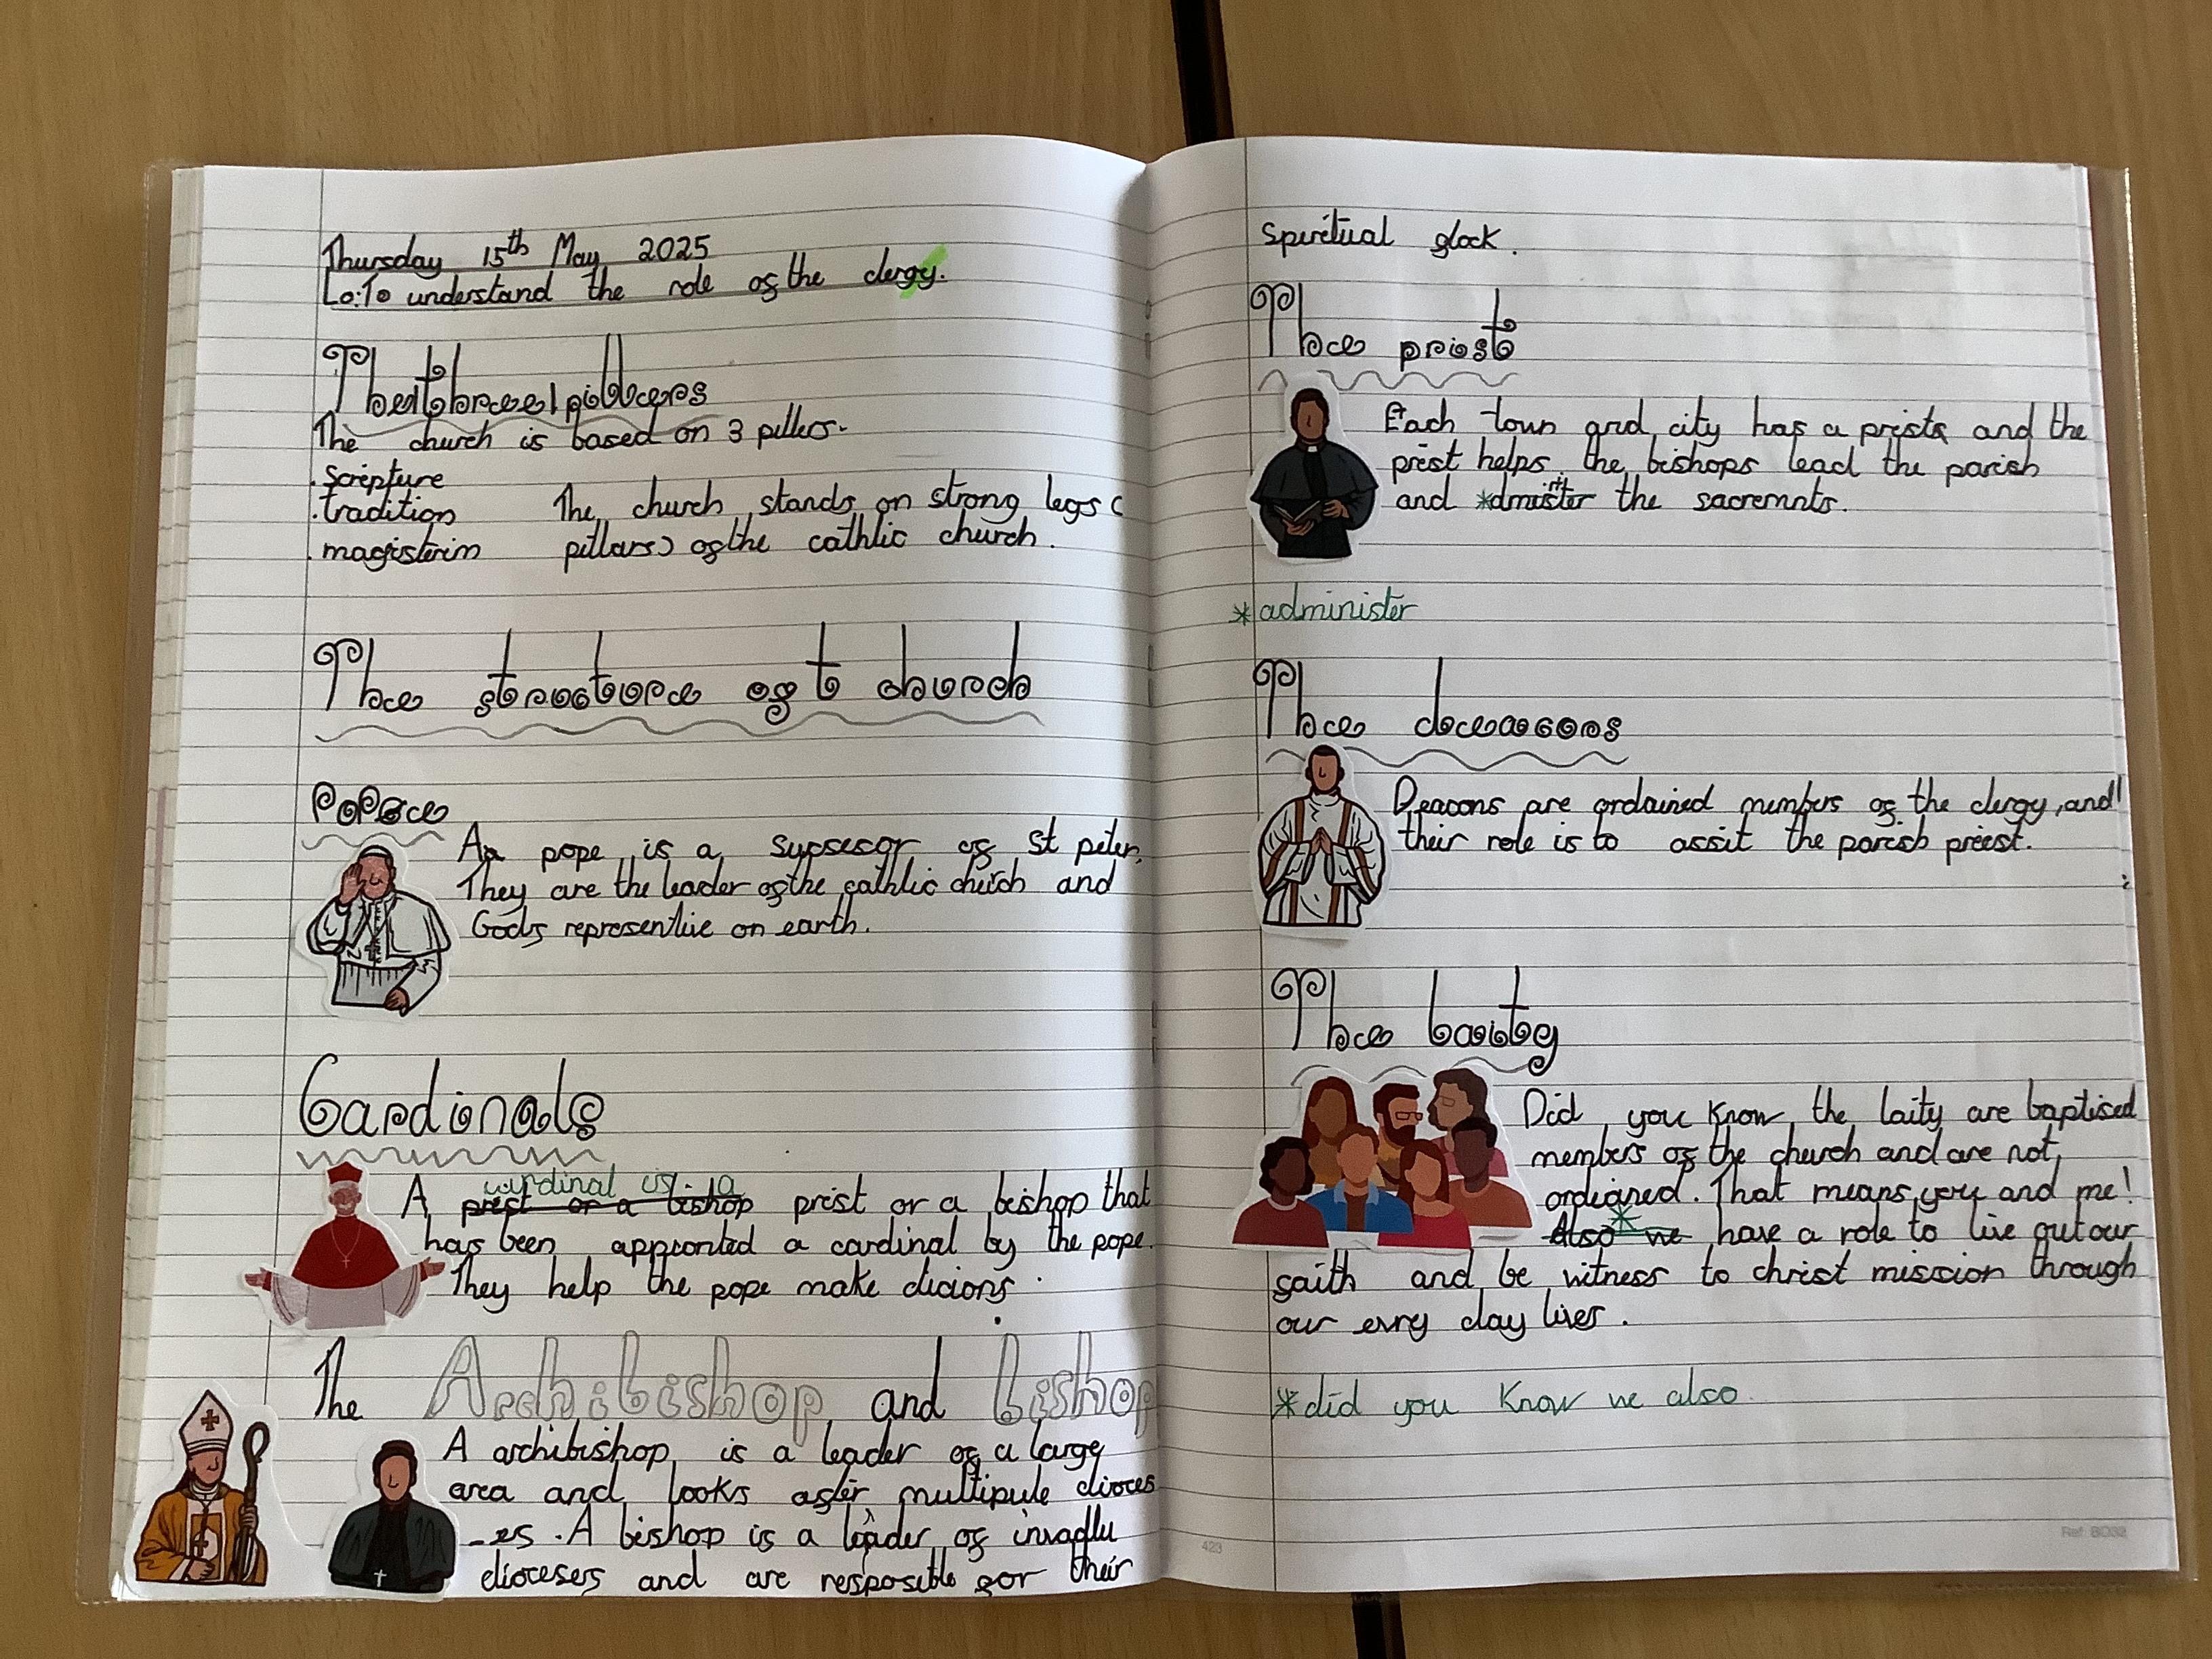 Thursday 15th May 2025
Lo: To understand the role of the clergy.
The three pillers
The church is based on 3 pillers.
. scripture
. tradition The church stands on strong legs (
. magisterim pillars) of the cathlic church.
The structure of t church
Pope
A pope is a sucsesor of St peter.
They are the leader of the cathlic church and
Gods representive on earth.
Cardinals
cardinal is a
A prest or a bishop prist or a bishop that
has been appionted a cardinal by the pope.
They help the pope make dicions.
The Archibishop and bishop
A archibishop is a leader of a large
area and looks after multipule dioces
-es. A bishop is a leader of
dioceses and are resposible for their
spiritual flock.
The priest
Each town and city has a prists and the
prest helps the bishops lead the parish
and *dminister the sacremnts.
*administer
The deacons
Deacons are ordained members of the clergy, and
their role is to assit the parish priest.
The laity
Did you know the laity are baptised
members of the church and are not
ordianed. That means you and me!
*
Also we have a role to live out our
faith and be witness to christ mission through
our evry day lives.
*did you know we also
423
Ref: BO32